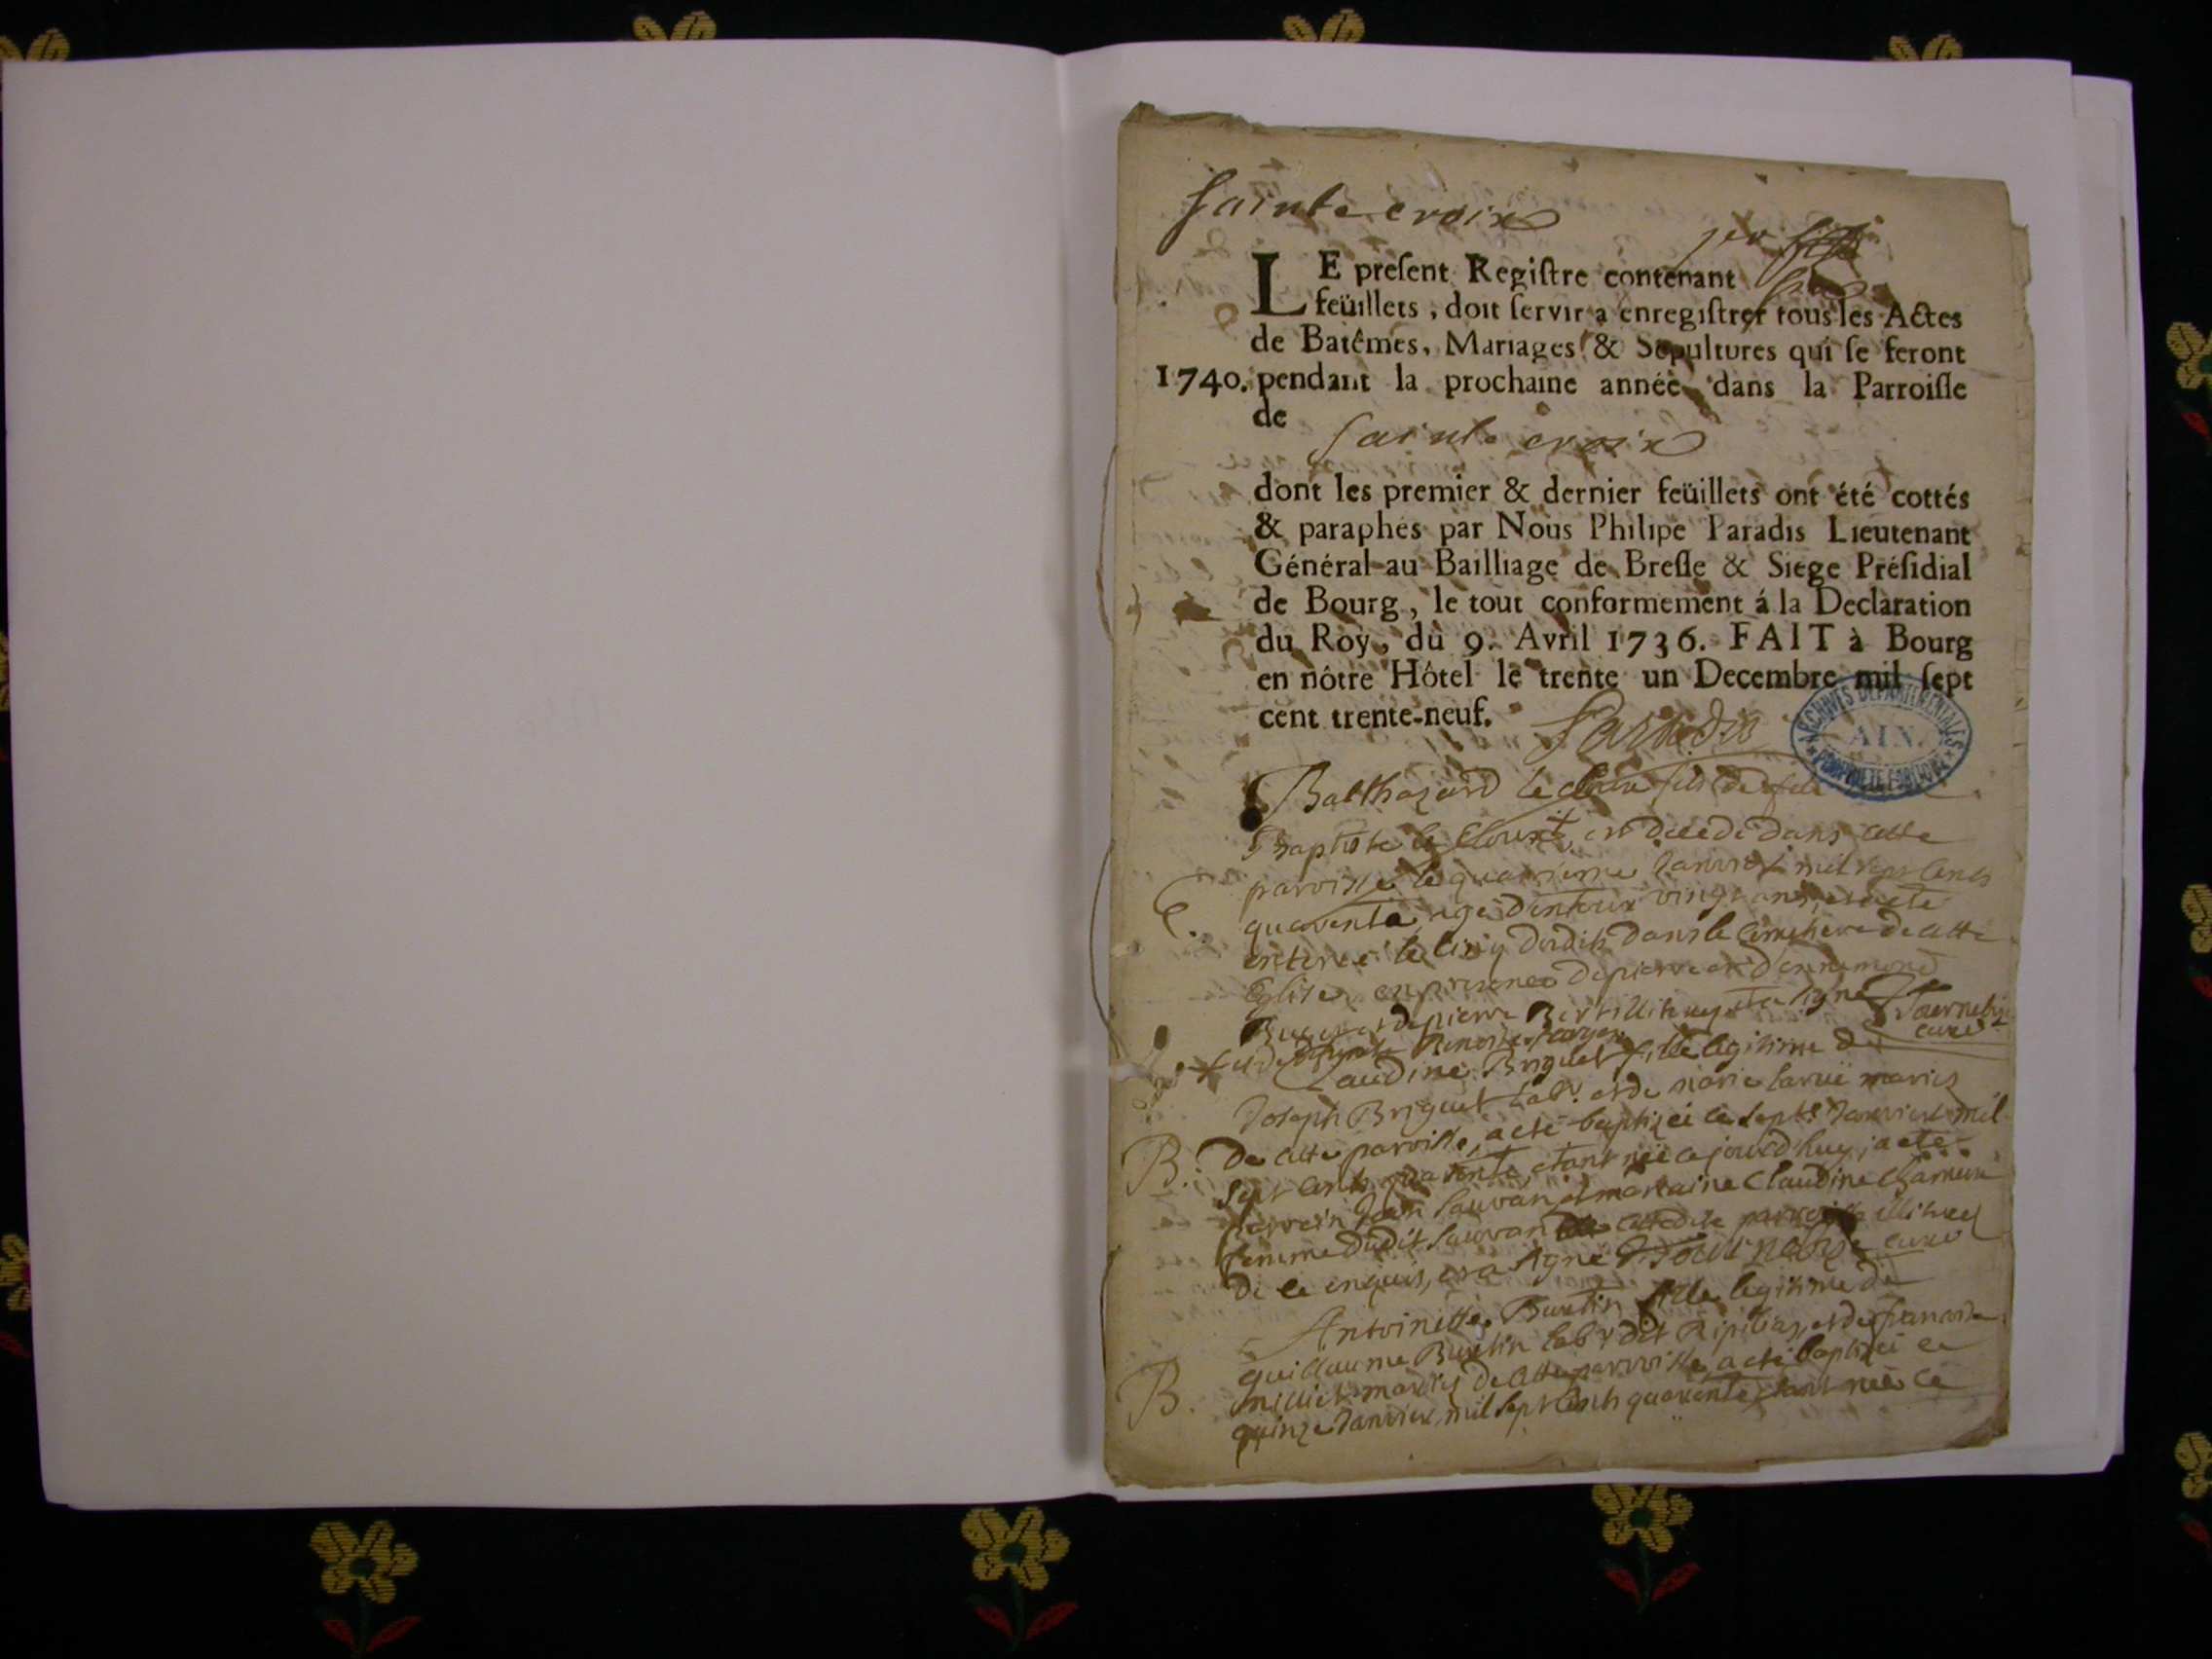 Sainte croix
LE preſent Regiſtre contenant
feüillets, doit ſervir a enregiſtrer tous les Actes
de Batêmes, Mariages & Sepultures qui ſe feront
1740. pendant la prochaine année dans la Parroiſſe
de
Sainte croix
dont les premier & dernier feüillets ont été cottés
& paraphés par Nous Philipe Paradis Lieutenant
Général au Bailliage de Breſſe & Siege Préſidial
de Bourg, le tout conformement á la Declaration
du Roy, du 9. Avril 1736. FAIT à Bourg
en nôtre Hôtel le trente un Decembre mil ſept
cent trente-neuf.
Paradis
ARCHIVES DEPARTEMENTALES
AIN.
PROPRIETE PUBLIQUE
Balthazard fils de
Baptiste est decede dans cette
paroisse le quatrieme Janvier mil sept cents
quarante, age d'entour vingt ans, et a ete
enterré le cinq dudit dans le cimetiere de cette
Eglise en presences de pierre et d'ennemond
et de pierre illiterez a signé Tournebize
curé
Claudine Briguet fille legitime de
Joseph Briguet lab.r et de marie mariez
B. De cette paroisse, a eté baptizéé le sept.e Janvier mil
sept cents quarante, etant néé ce jourd'huy; a ete
parrain Jean Sauvan et marraine Claudine
femme dudit Sauvan cettedite parroisse illiterez
de ce enquis, et a signé Tournebize curé
Antoinette Buretin fille legitime de
guillaume Buretin lab.r dit et de francoise
B. milliet mariez de cette parroisse, a eté baptizéé le
quinze Janvier mil sept cents quarante etant néé ce